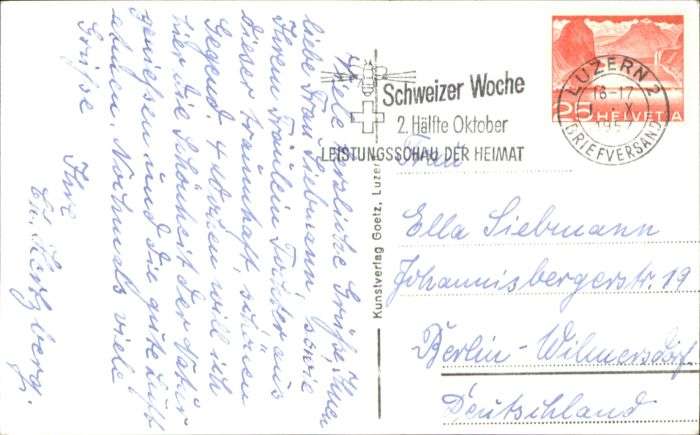 Viele herzliche Grüße, Ihnen
liebe Frau Siebmann, sowie
Ihrem Fräulein Tochter aus
dieser traumhaft schönen
Gegend. 4 Wochen will ich
hier die Schönheit der Natur
genießen und die gute Luft
atmen. Nochmals viele
Grüße
Ihre
Schweizer Woche
2. Hälfte Oktober
LEISTUNGSSCHAU DER HEIMAT
LUZERN 2
16-17
BRIEFVERSAND
25 HELVETIA
Kunstverlag Goetz, Luzern
Frau
Ella Siebmann
Johannisbergerstr. 19
Berlin-Wilmersdorf
Deutschland